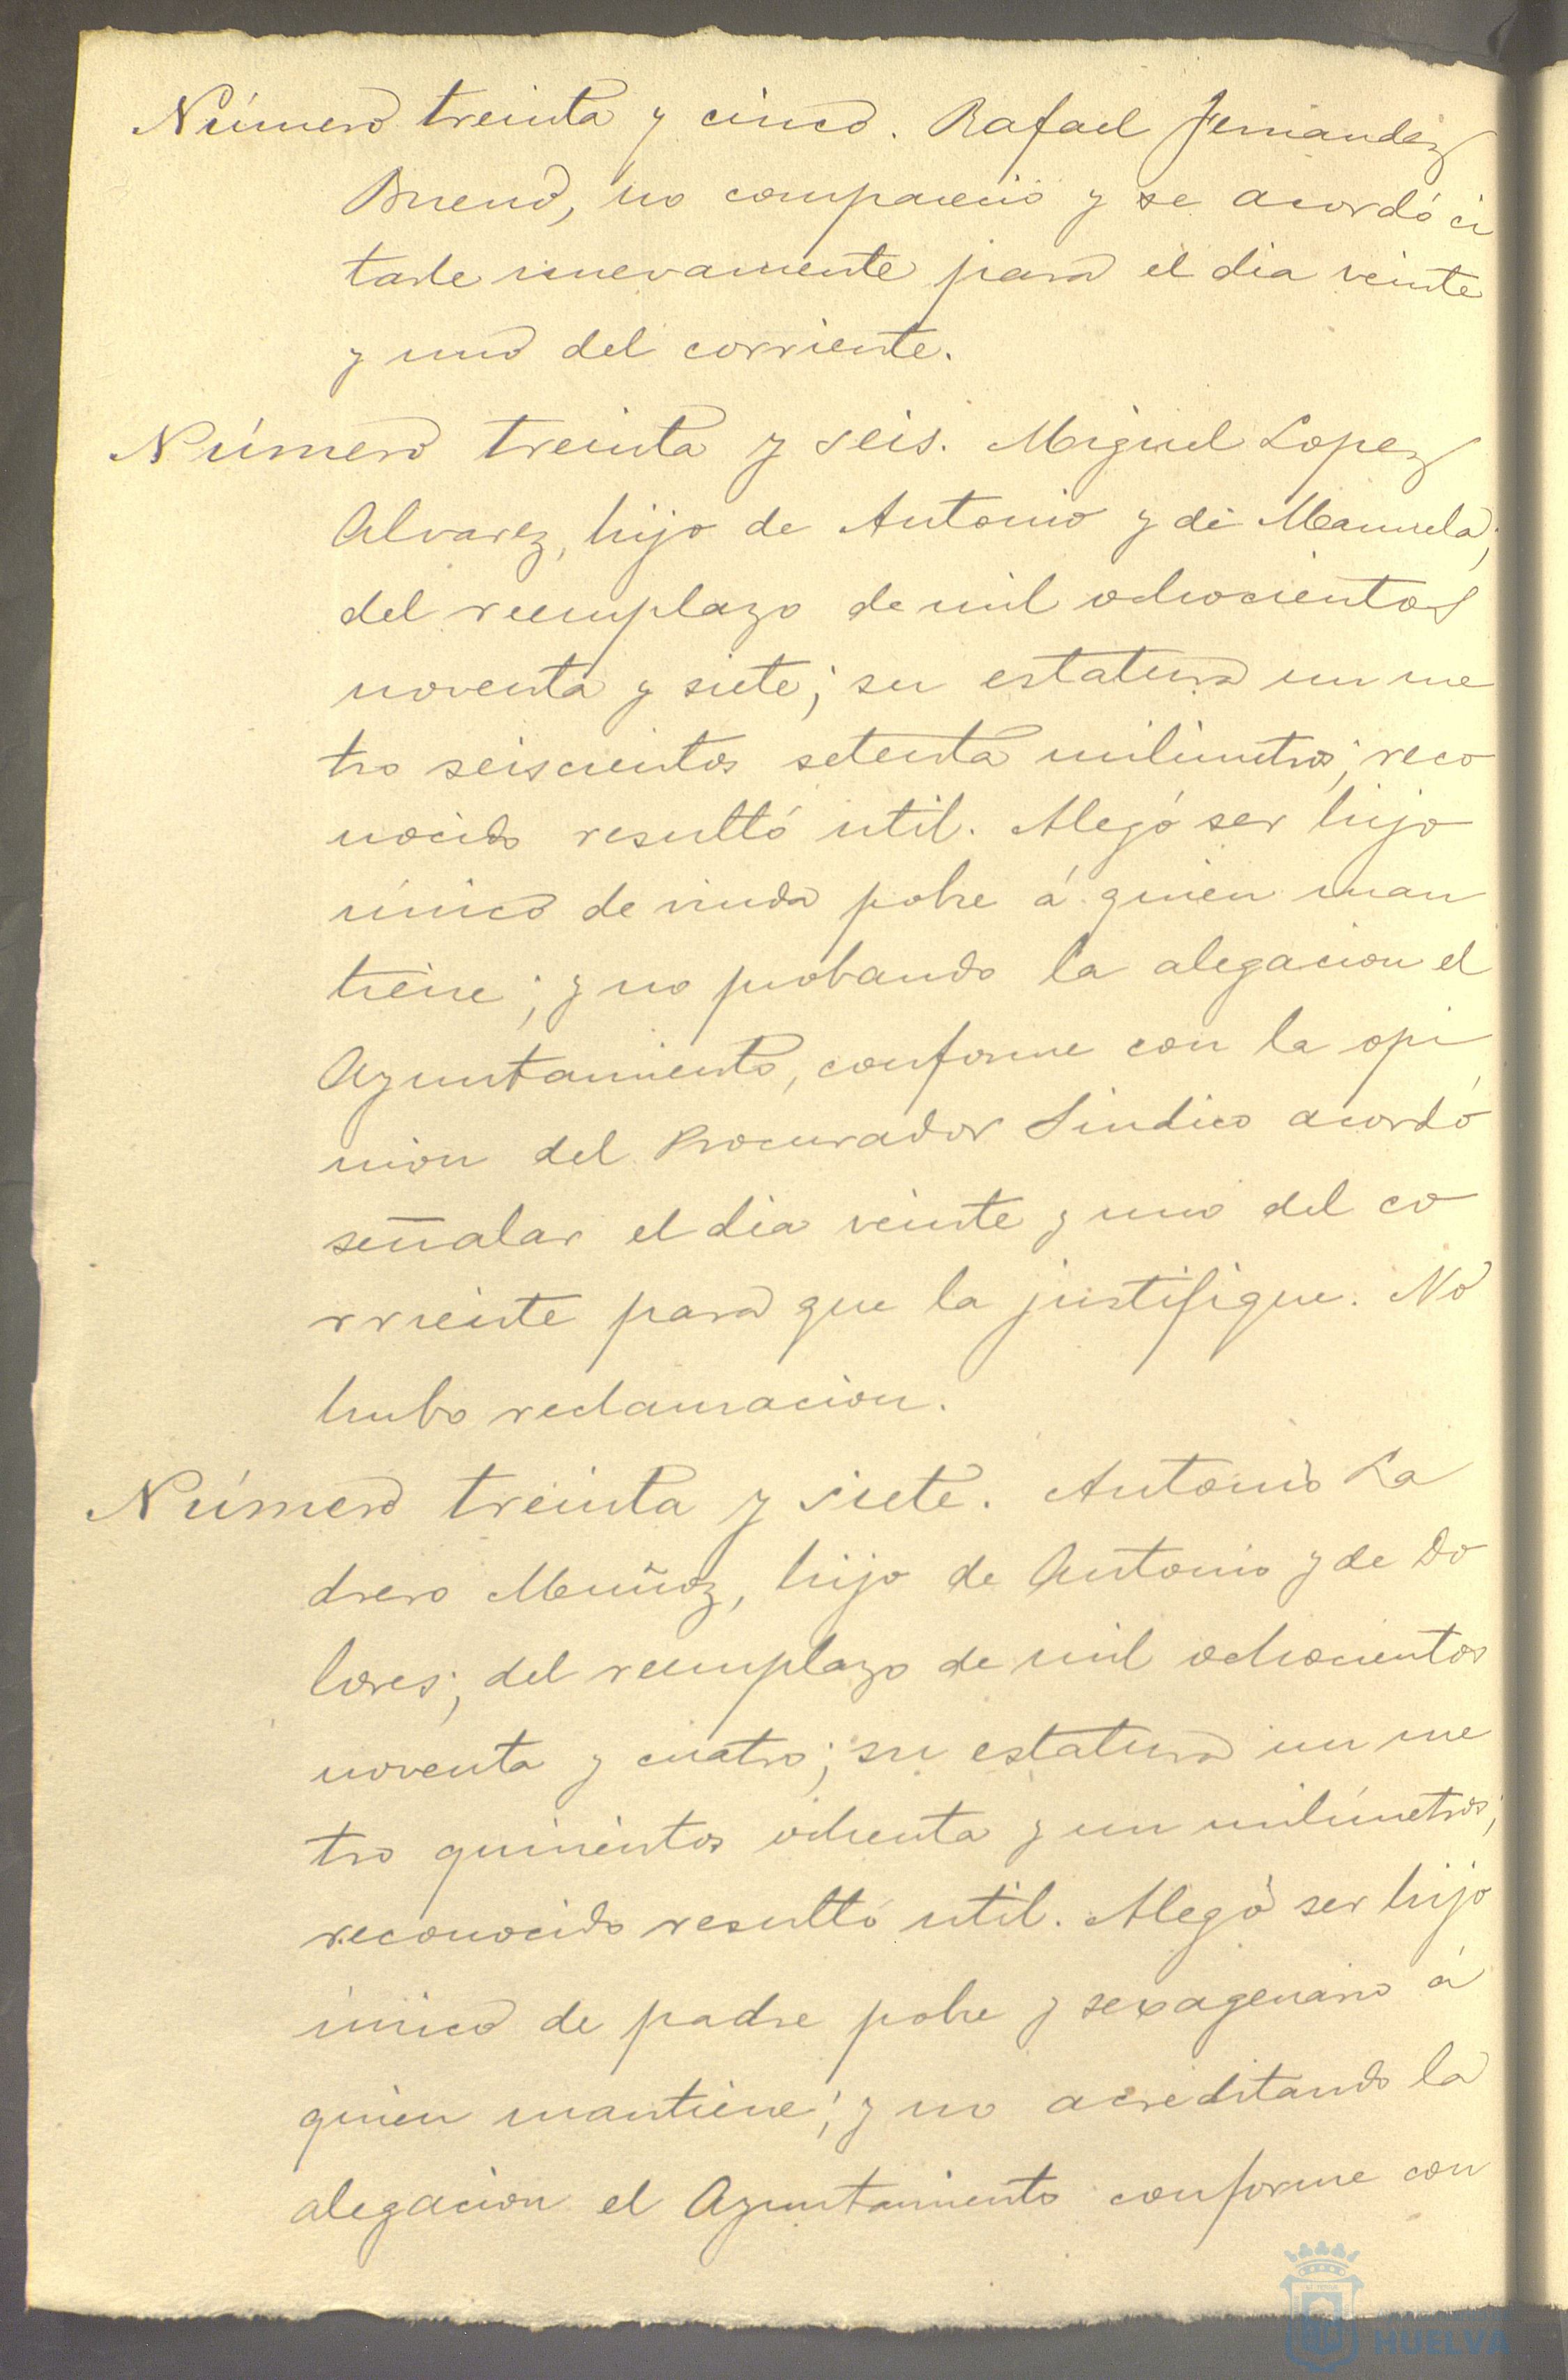 Número treinta y cinco. Rafael Fernandez
Bueno, no compareció y se acordó ci
tarle nuevamente para el dia veinte
y uno del corriente.
Número treinta y seis. Miguel Lopez
Alvarez, hijo de Antonio y de Manuela;
del reemplazo de mil ochocientos
noventa y siete; su estatura un me
tro seiscientos setenta milimetros; reco
nocido resultó util. Alegó ser hijo
único de viuda pobre á quien man
tiene; y no probando la alegacion el
Ayuntamiento, conforme con la opi
nion del Procurador Sindico acordó
señalar el dia veinte y uno del co
rriente para que la justifique. No
hubo reclamacion.
Número treinta y siete. Antonio La
drero Muñoz, hijo de Antonio y de Do
lores; del reemplazo de mil ochocientos
noventa y cuatro; su estatura un me
tro quinientos ochenta y un milímetros;
reconocido resultó util. Alegó ser hijo
único de padre pobre y sexagenario á
quien mantiene; y no acreditando la
alegacion el Ayuntamiento conforme con
HUELVA